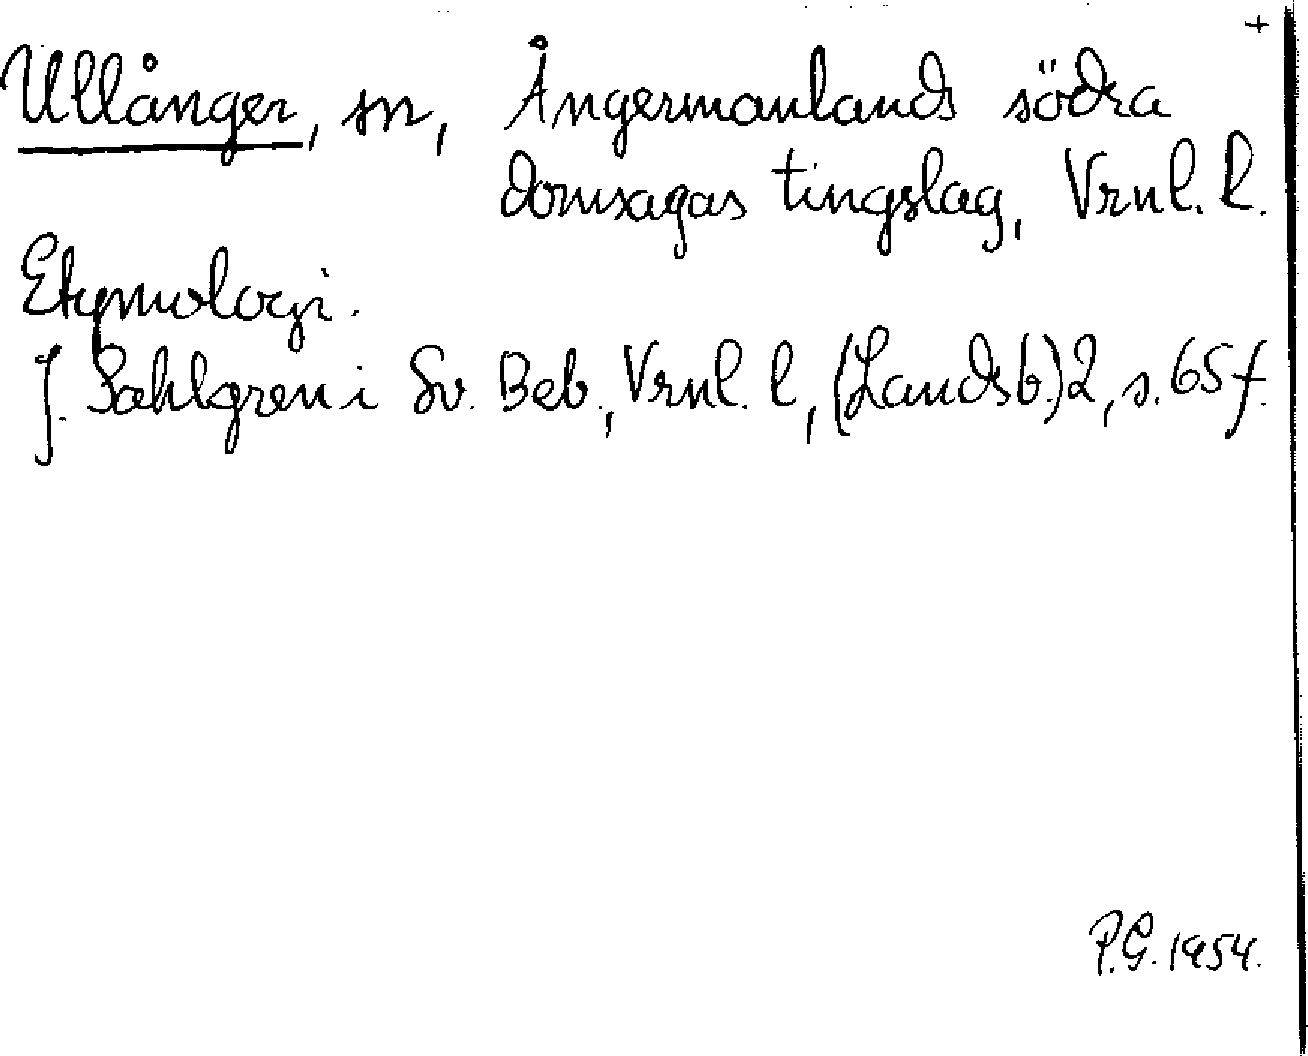 +
Ullånger, sn, Ångermanlands södra
domsagas tingslag, Vrnl. l.
Etymologi.
J. Sahlgren i Sv. Beb., Vrnl. l, (Landsb.) 2, s. 65 f.
P.G. 1954.